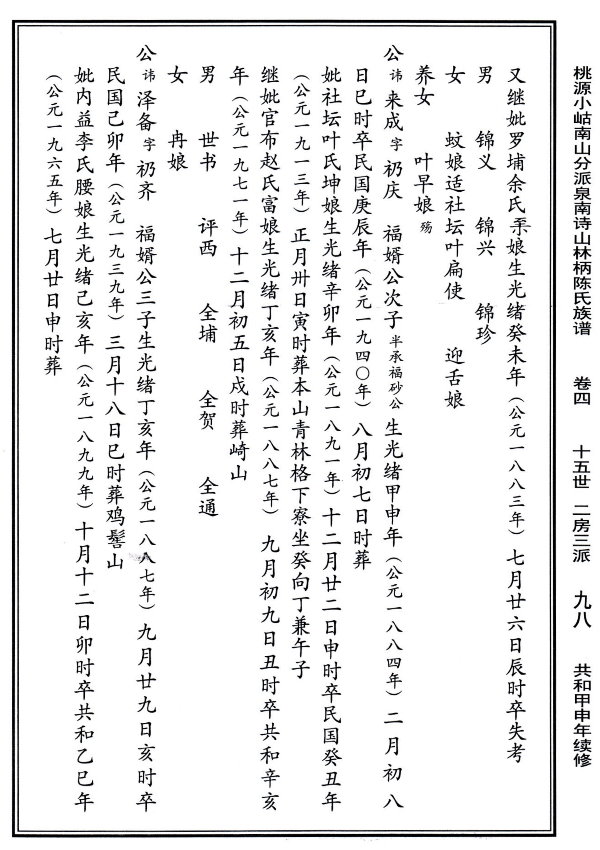 桃源小岵南山分派泉南诗山林柄陈氏族谱 卷四 十五世 二房三派 九八 共和甲申年续修
又继妣罗埔余氏 娘生光绪癸未年（公元一八八三年）七月廿六日辰时卒失考
男 锦义 锦兴 锦珍
女 蚊娘适社坛叶扁使 迎舌娘
养女 叶早娘殇
公讳来成字礽庆 福婿公次子半承福砂公生光绪甲申年（公元一八八四年）二月初八
日巳时卒民国庚辰年（公元一九四〇年）八月初七日时葬
妣社坛叶氏坤娘生光绪辛卯年（公元一八九一年）十二月廿二日申时卒民国癸丑年
（公元一九一三年）正月卅日寅时葬本山青林格下寮坐癸向丁兼午子
继妣官布赵氏富娘生光绪丁亥年（公元一八八七年）九月初九日丑时卒共和辛亥
年（公元一九七一年）十二月初五日戌时葬崎山
男 世书 评西 全埔 全贺 全通
女 冉娘
公讳泽备字礽齐 福婿公三子生光绪丁亥年（公元一八八七年）九月廿九日亥时卒
民国己卯年（公元一九三九年）三月十八日巳时葬鸡髻山
妣内益李氏腰娘生光绪己亥年（公元一八九九年）十月十二日卯时卒共和乙巳年
（公元一九六五年）七月廿日申时葬